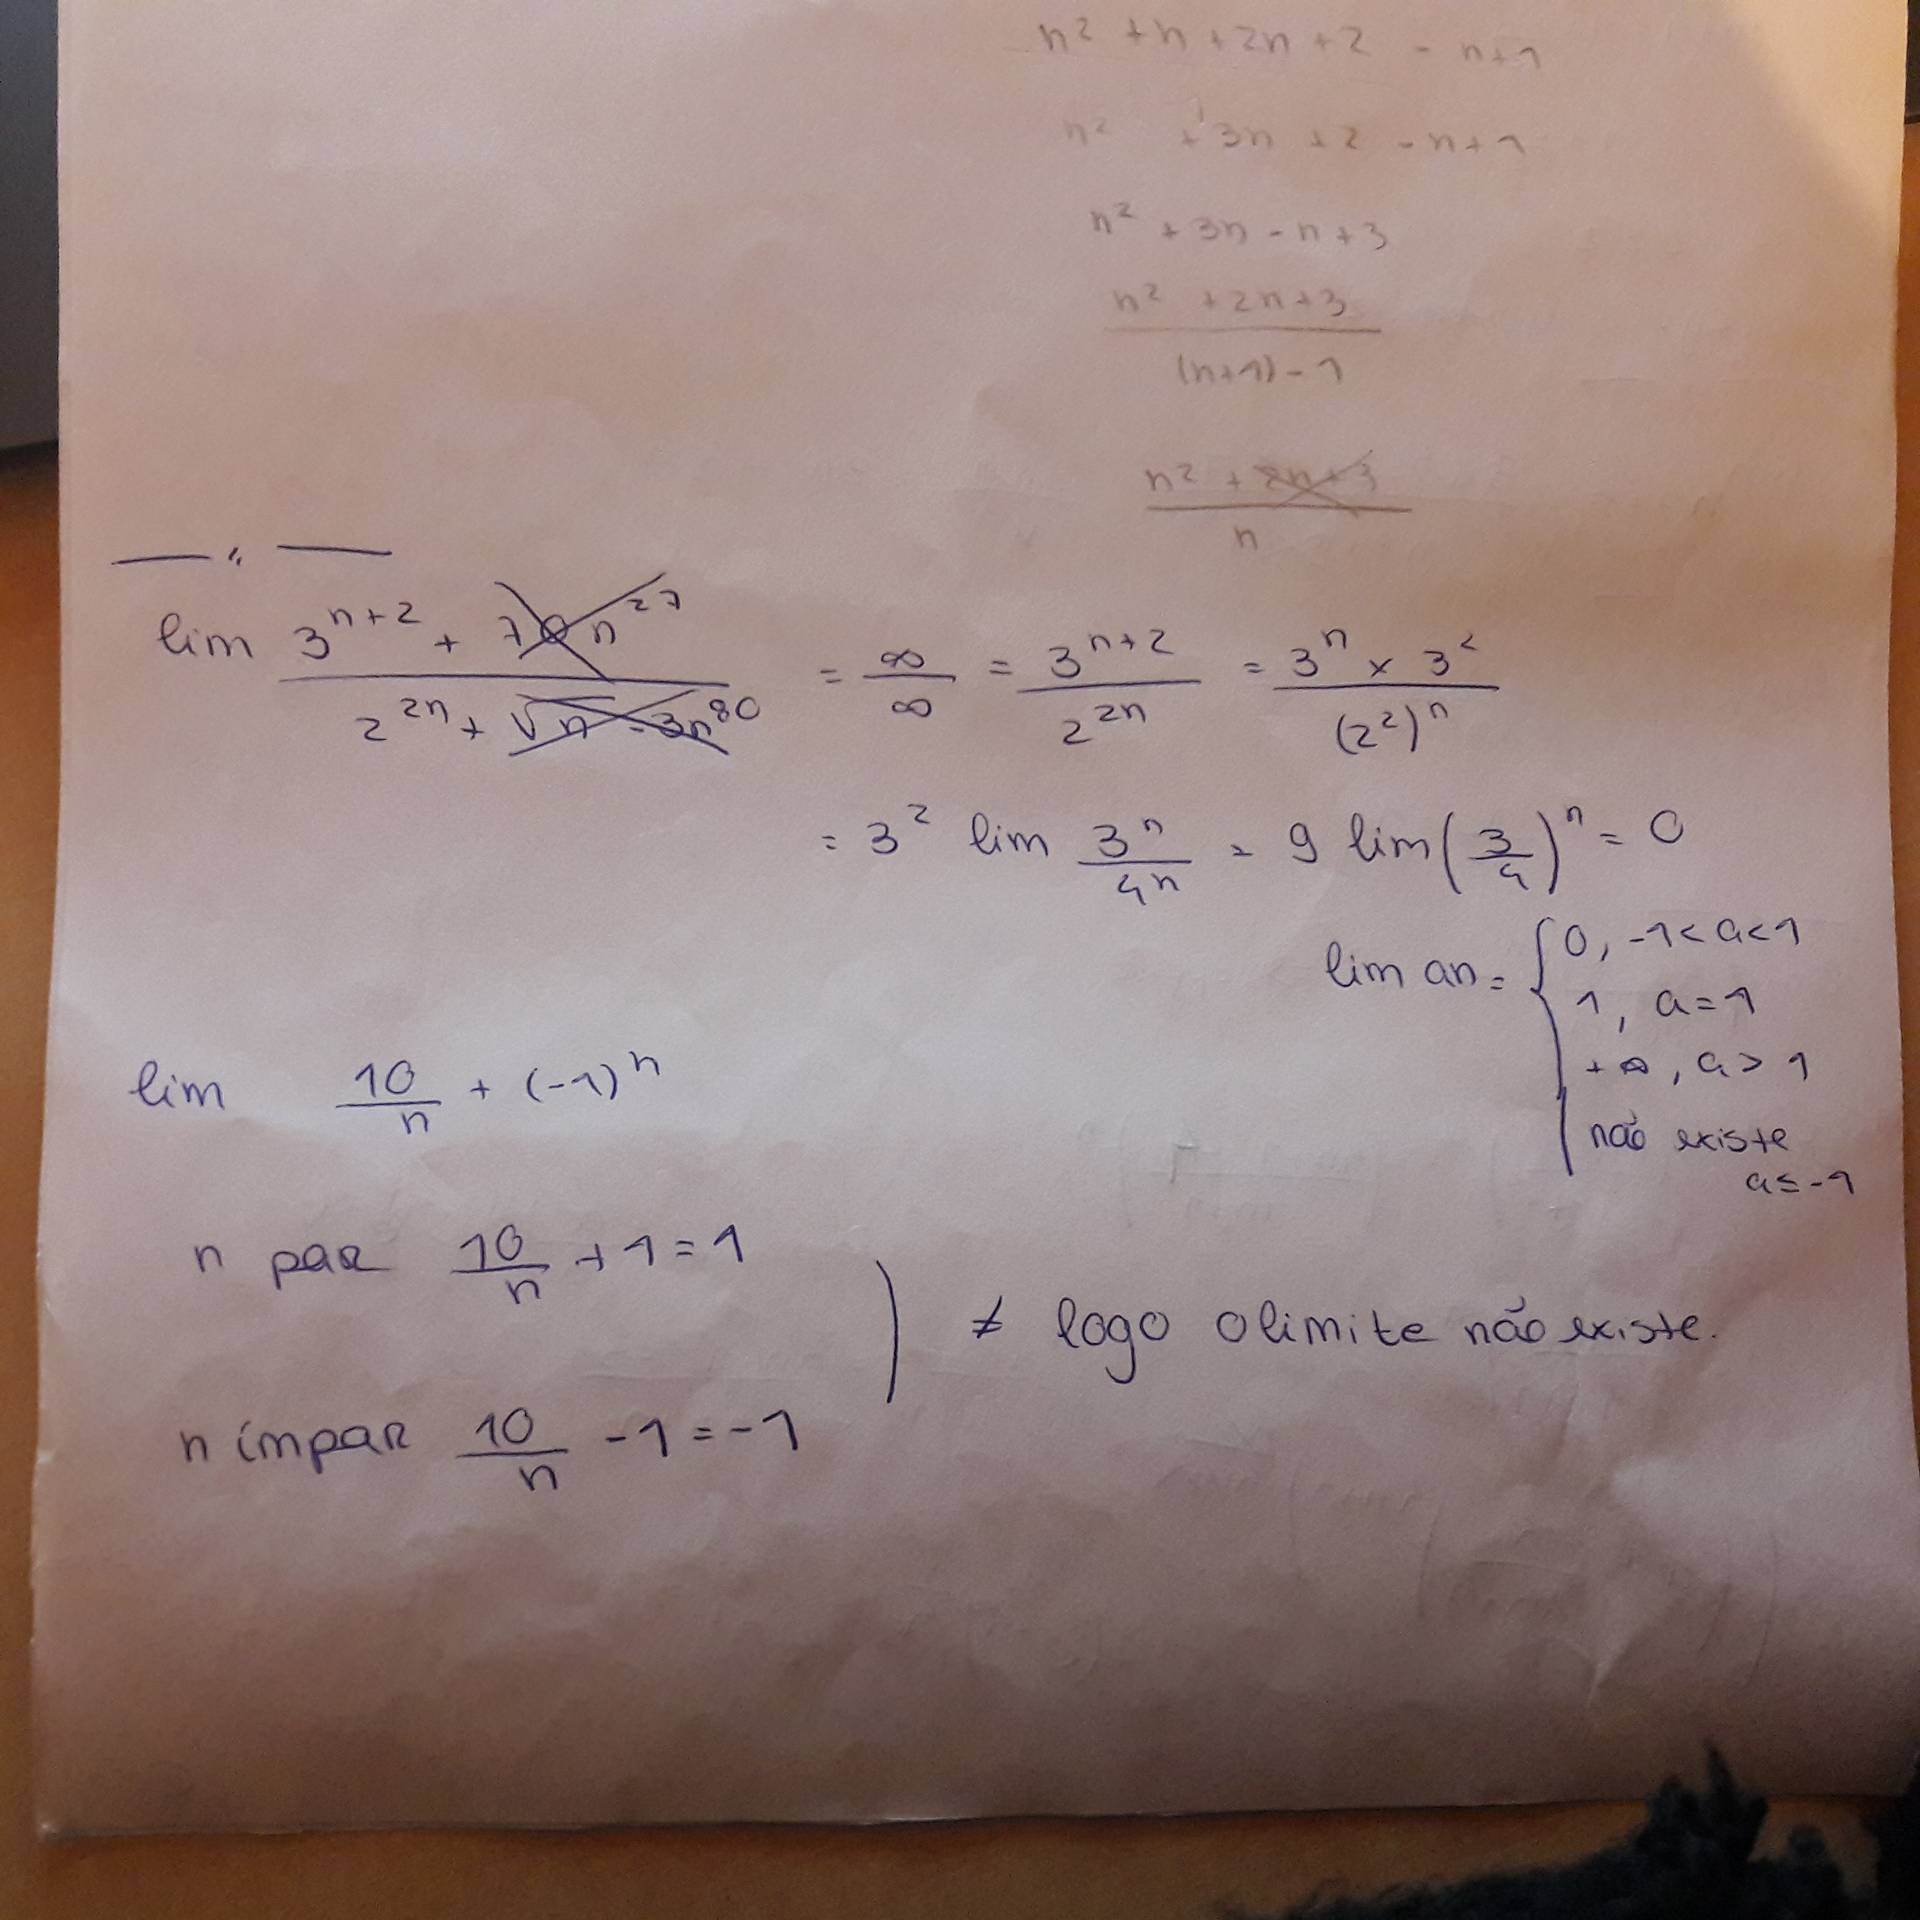 n² + n + 2n + 2 - n+1
n² + 3n + 2 - n+1
n² + 3n - n + 3
n² + 2n + 3
(n+1) - 1
n² + 2n + 3
n
lim 3^(n+2) + 70 n^27 / 2^(2n) + √n - 3n^80 = ∞/∞ = 3^(n+2) / 2^(2n) = 3^n × 3² / (2²)^n
= 3² lim 3^n / 4^n = 9 lim (3/4)^n = 0
lim an = { 0, -1 < a < 1
1, a = 1
+∞, a > 1
não existe
a ≤ -1
lim 10/n + (-1)^n
n par 10/n + 1 = 1
≠ logo o limite não existe.
n ímpar 10/n - 1 = -1